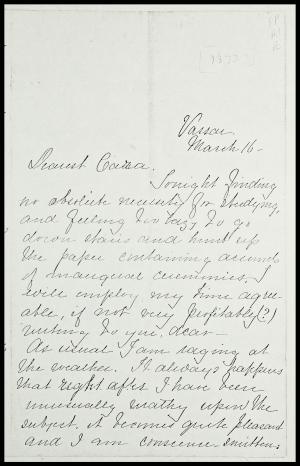 [1877?]
Vassar.
March 16-
Dearest Carra.
Tonight finding
no absolute necessity for studying,
and feeling too lazy to go
down stairs and hunt up
the paper containing account
of inaugural ceremonies. I
will employ my time agree-
able, if not very profitably (?)
writing to you. dear-
As usual I am raging at
the weather. It always happens
that right after I have been
unusually wrathy upon the
subject. it becomes quite pleasant
and I am conscience smitten.